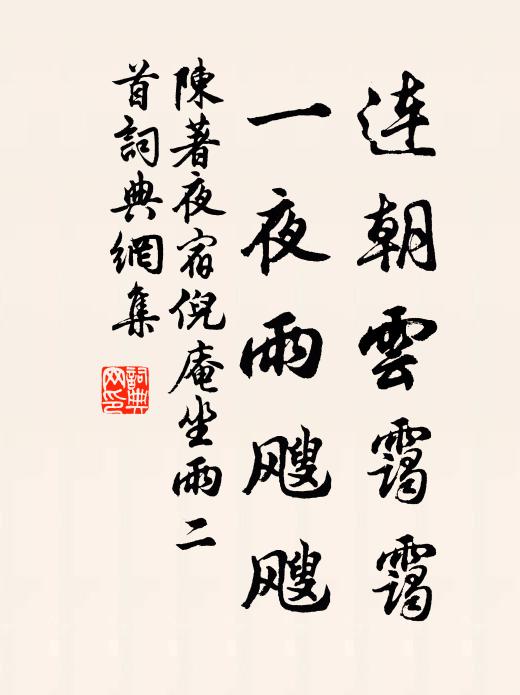 連朝雲靄靄
一夜雨颼颼
陳著夜宿倪庵坐雨二
首詞典網集
詞典
网印